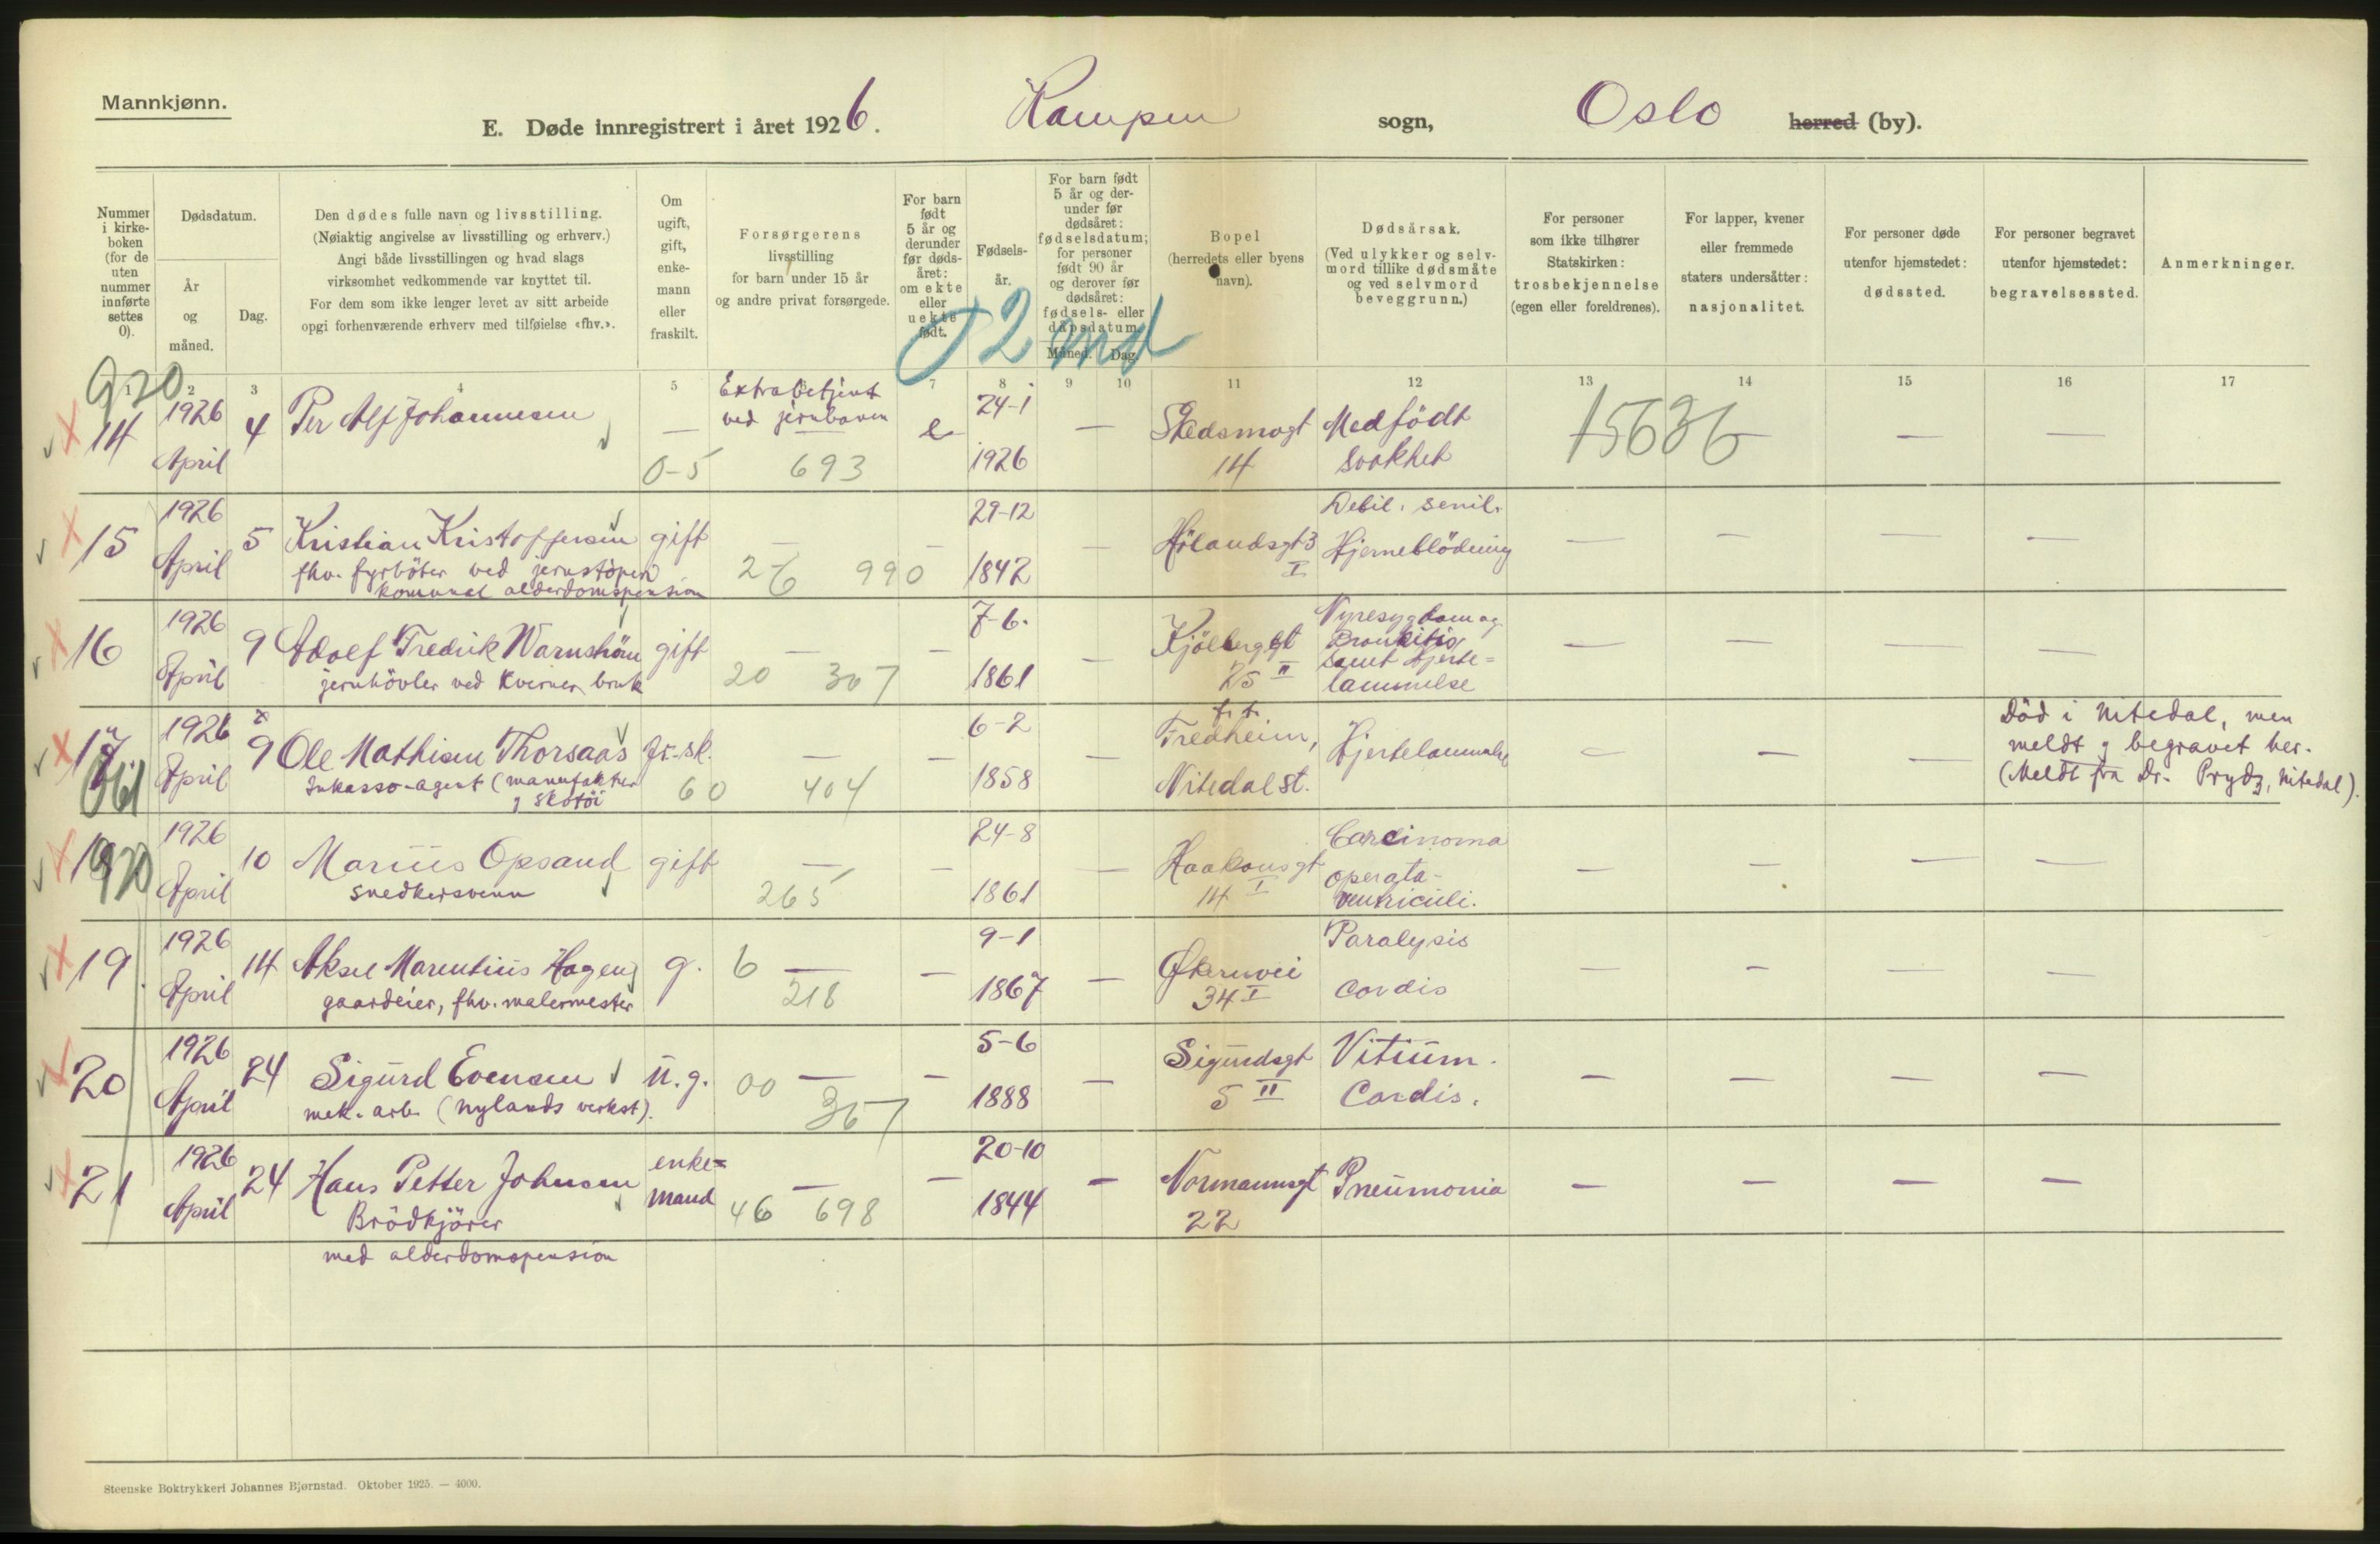 Mannkjønn.
E. Døde innregistrert i året 1926. Kampen sogn, Oslo herred (by).
Nummer i kirkeboken (for de uten nummer innførte settes 0).
Dødsdatum.
År og måned.
Dag.
Den dødes fulle navn og livsstilling.
(Nøiaktig angivelse av livsstilling og erhverv.)
Angi både livsstillingen og hvad slags
virksomhet vedkommende var knyttet til.
For dem som ikke lenger levet av sitt arbeide
opgi forhenværende erhverv med tilføielse «fhv.».
Om ugift, gift, enkemann eller fraskilt.
Forsørgerens
livsstilling
for barn under 15 år
og andre privat forsørgede.
For barn født 5 år og derunder før dødsåret: om ekte eller uekte født.
Fødselsår.
For barn født 5 år og derunder før dødsåret: fødselsdatum; for personer født 90 år og derover før dødsåret: fødsels- eller dåpsdatum.
Måned. Dag.
Bopel
(herredets eller byens navn).
Dødsårsak.
(Ved ulykker og selvmord tillike dødsmåte og ved selvmord beveggrunn.)
For personer som ikke tilhører Statskirken: trosbekjennelse (egen eller foreldrenes).
For lapper, kvener eller fremmede staters undersåtter: nasjonalitet.
For personer døde utenfor hjemstedet: dødssted.
For personer begravet utenfor hjemstedet: begravelsessted.
Anmerkninger.
2 md
1 2 3 4 5 7 8 9 10 11 12 13 14 15 16 17
920
14 1926 April 4 Per Alf Johannesen — Extrabetjent ved jernbanen e 24-1 1926 — Skedsmogt 14 Medfödt svakhet — — —
0-5 693 15636
15 1926 April 5 Kristian Kristoffersen gift — — 29-12 1842 — Hølandsgt 3 I Debil. senil. Hjerneblödning — — — —
fhv. fyrböter ved jernstöperi
komunal alderdomspension
26 990
16 1926 April 9 Adolf Fredrik Warnshöu gift — — 7-6. 1861 — Kjölberggt 25 II Nyresygdom og Bronkitis samt Hjerte= lammelse — — — —
jernhövler ved Kværner bruk
20 307
17 1926 April 9 Ole Mathisen Thorsaas fr. sk. — — 6-2 1858 — Fredheim, Nitedal st. Hjertelammelse — — —
Inkasso-agent (manufaktur
g skotöi
60 404
Död i Nitedal, men
meldt g begravet her.
(Meldt fra Dr. Prydz, Nitedal).
061
18 1926 April 10 Marius Opsand gift — — 24-8 1861 — Haakonsgt 14 I Carcinoma operata- ventriculi. — — — —
snedkersvenn
265
920
19. 1926 April 14 Aksel Marentius Hagen g. — — 9-1 1867 — Økernvei 34 I Paralysis cordis — — — —
gaardeier, fhv. malermester
6 218
20 1926 April 24 Sigurd Evensen u. g. — — 5-6 1888 — Sigurdsgt 5 II Vitium. Cordis. — — — —
mek. arb. (Nylands verkst).
00 367
21 1926 April 24 Hans Petter Johnsen enke= mand — — 20-10 1844 — Normannsgt 22 Pneumonia — — — —
Brödkjörer
med alderdomspension
46 698
Steenske Boktrykkeri Johannes Bjørnstad. Oktober 1925. — 4000.